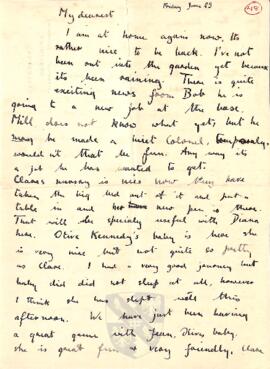 Friday June 23
218
My dearest
I am at home again now. Its
rather nice to be back. I've not
been out into the garden yet because
its been raining. There is quite
exciting news from Bob he is
going to a new job at the base.
Mill does not know what yet, but he
may be made a Lieut Colonel,
wouldn't that be fun. Any way its
a job he has wanted to get.
Clares nursery is nice now they have
taken the big bed out of it and put a
table in and her new pen is there.
That will be specialy useful with Diana
here. Olive Kennedy's baby is here she
is very nice but not quite so pretty
as Clare. I had a very good journey but
baby did not sleep at all, however
I think she has slept well this
afternoon. We have just been having
a great game with Jean, Olives baby.
she is great fun & very friendly, Clare